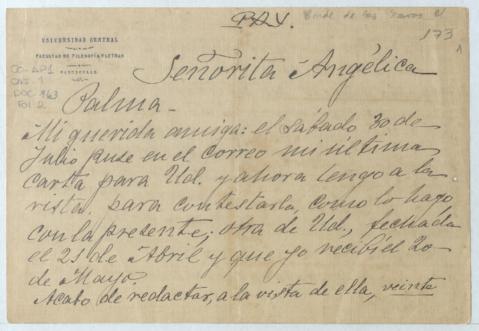 UNIVERSIDAD CENTRAL
FACULTAD DE FILOSOFÍA Y LETRAS
PARTICULAR
Conde de las Navas
173
CC-AP1
DOC 163
FOL 2
Señorita Angélica
Palma-
Mi querida amiga: el sábado 30 de
Julio puse en el correo mi última
carta para Ud. y ahora tengo a la
vista, para contestarla, como lo hago
con la presente, otra de Ud., fechada
el 21 de Abril y que yo recibí el 20
de Mayo.
Acabo de redactar, a la vista de ella, veinte